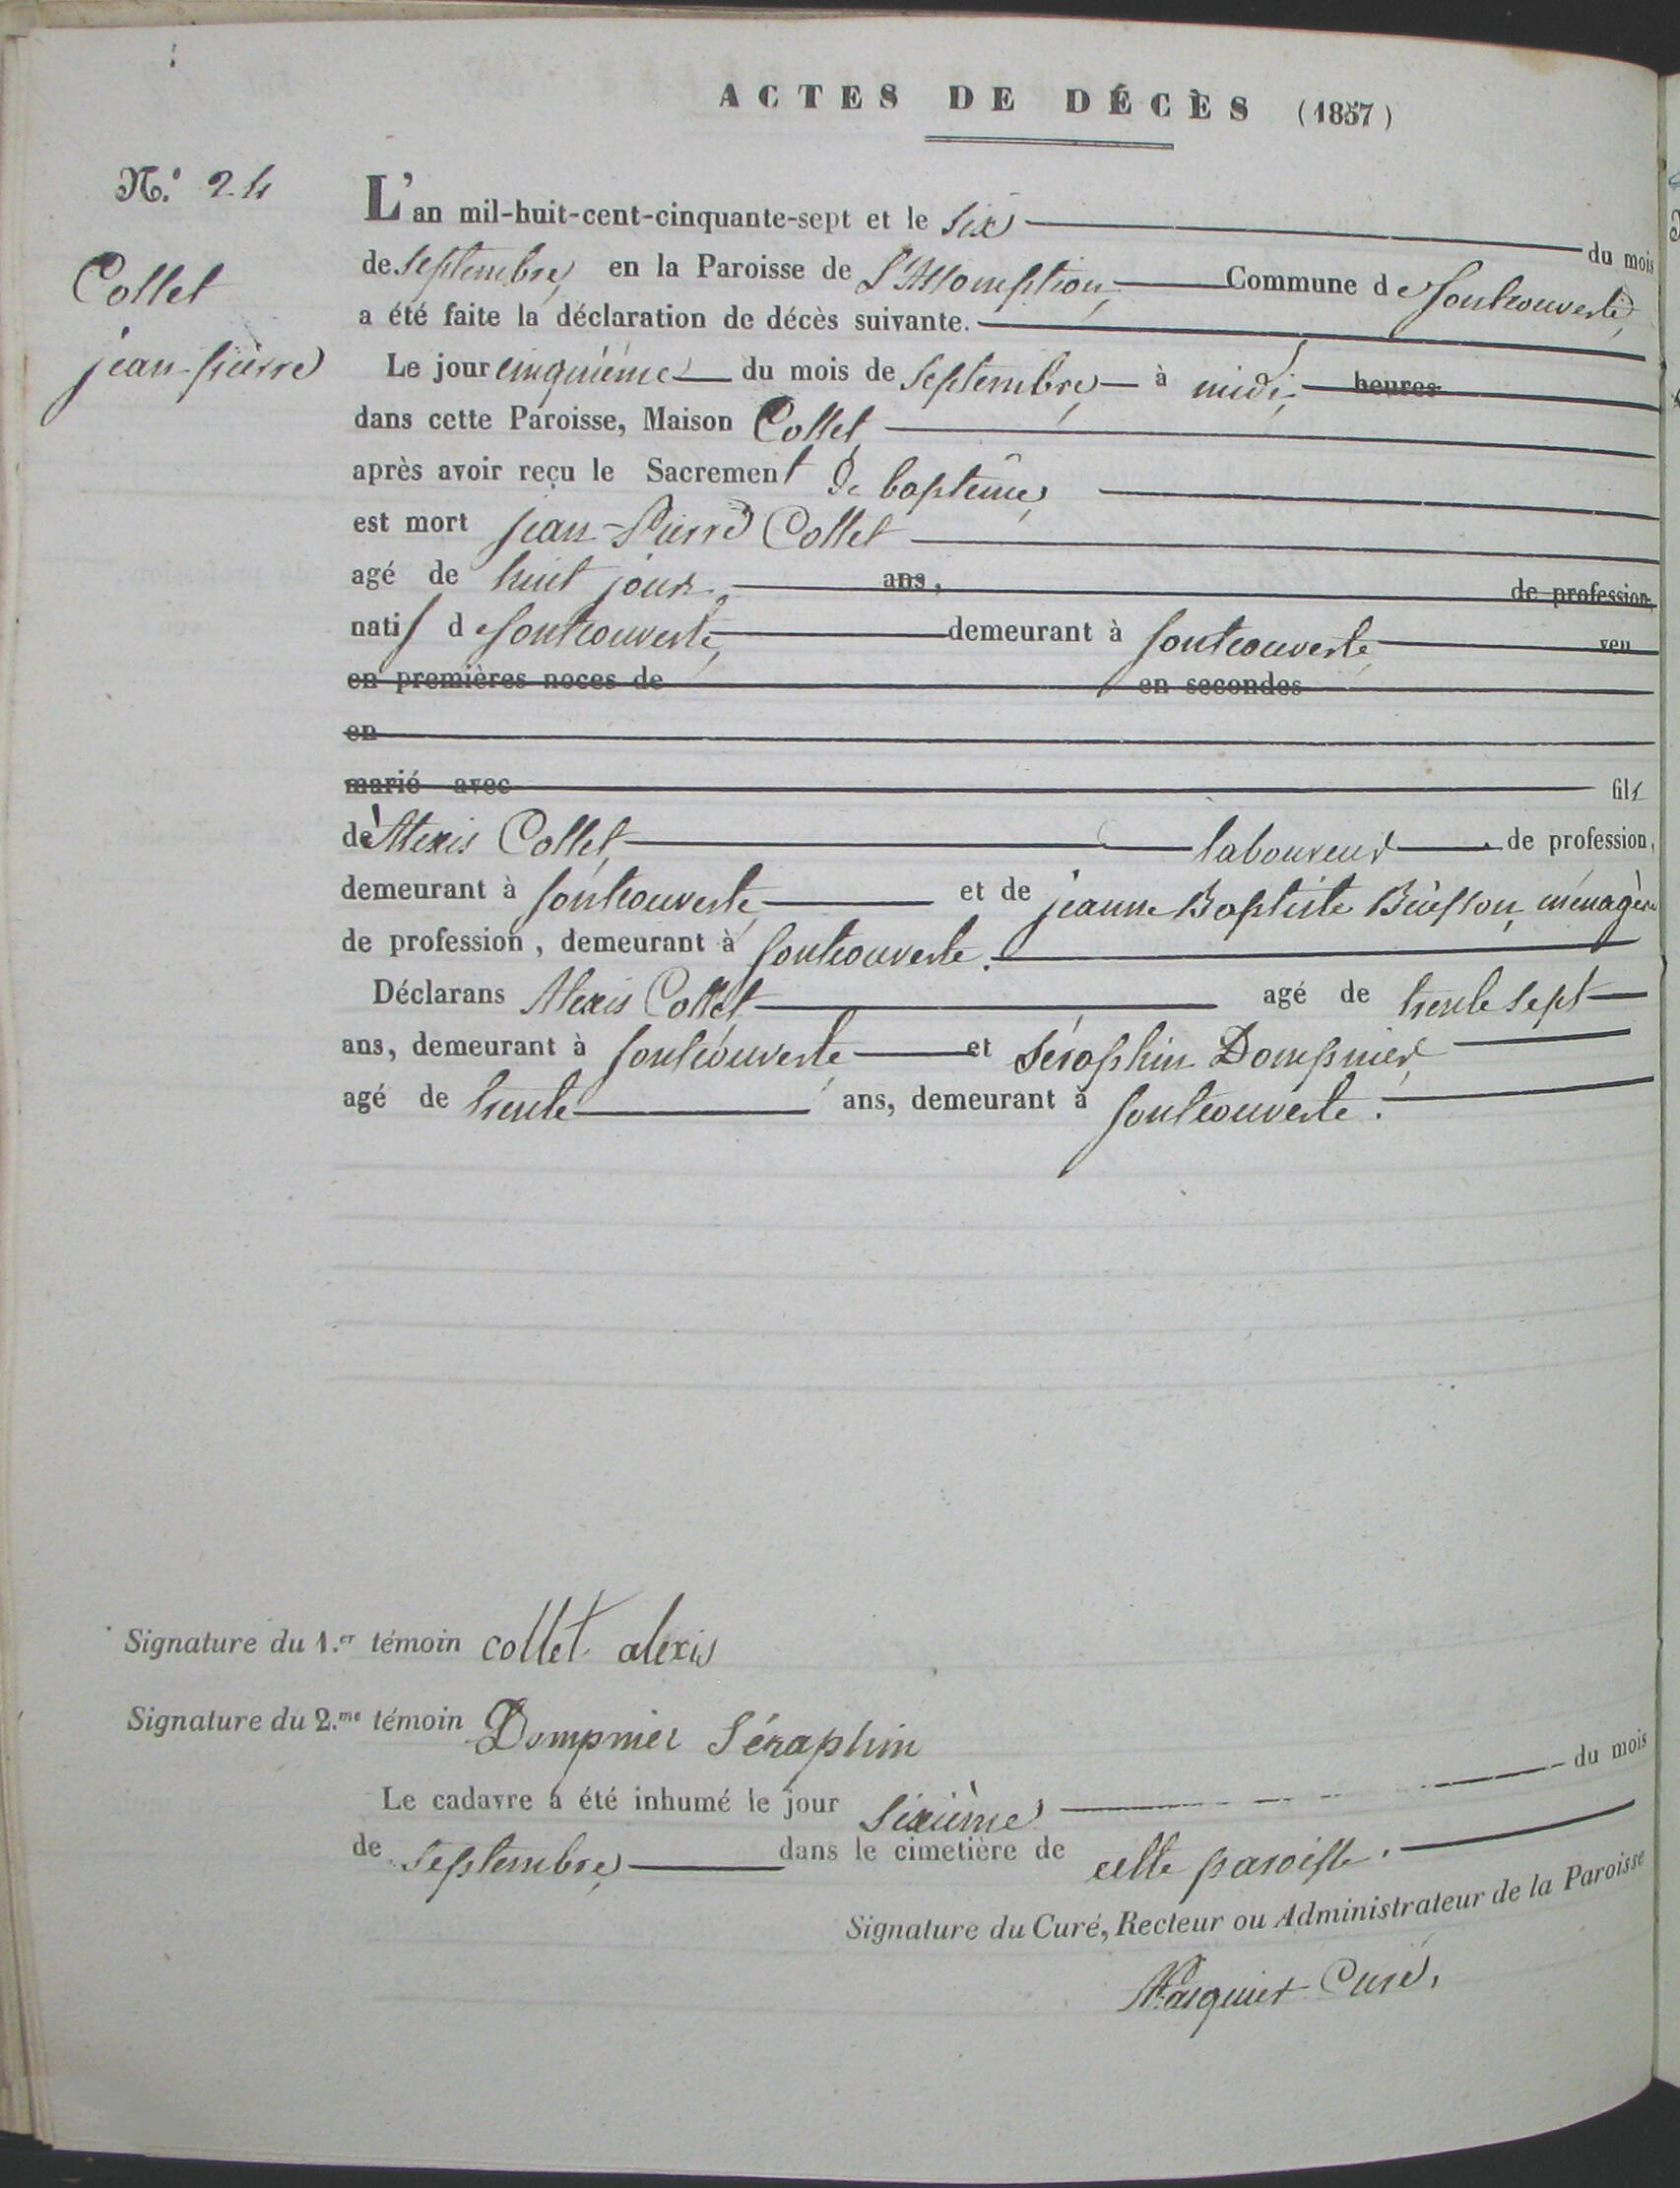 ACTES DE DÉCÈS (1857)
N.° 24
Collet
jean-pierre
L'an mil-huit-cent-cinquante-sept et le six du mois
de septembre, en la Paroisse de l'Assomption, Commune de fontcouverte,
a été faite la déclaration de décès suivante.
Le jour cinquième du mois de septembre, à midi, heures
dans cette Paroisse, Maison Collet
après avoir reçu le Sacrement de baptême,
est mort jean-Pierre Collet
agé de huit jours, ans, de profession,
natif de fontcouverte, demeurant à fontcouverte, veu
en premières noces de en secondes
en
marié avec fils
d'Alexis Collet, laboureur de profession,
demeurant à fontcouverte, et de jeanne Baptiste Buisson, ménagère
de profession, demeurant à fontcouverte.
Déclarans Alexis Collet agé de trente sept
ans, demeurant à fontcouverte et Séraphin Dompnier,
agé de trente ans, demeurant à fontcouverte.
Signature du 1.er témoin collet alexis
Signature du 2.me témoin Dompnier Séraphin
Le cadavre a été inhumé le jour sixième du mois
de septembre, dans le cimetière de cette paroisse.
Signature du Curé, Recteur ou Administrateur de la Paroisse
Curé,